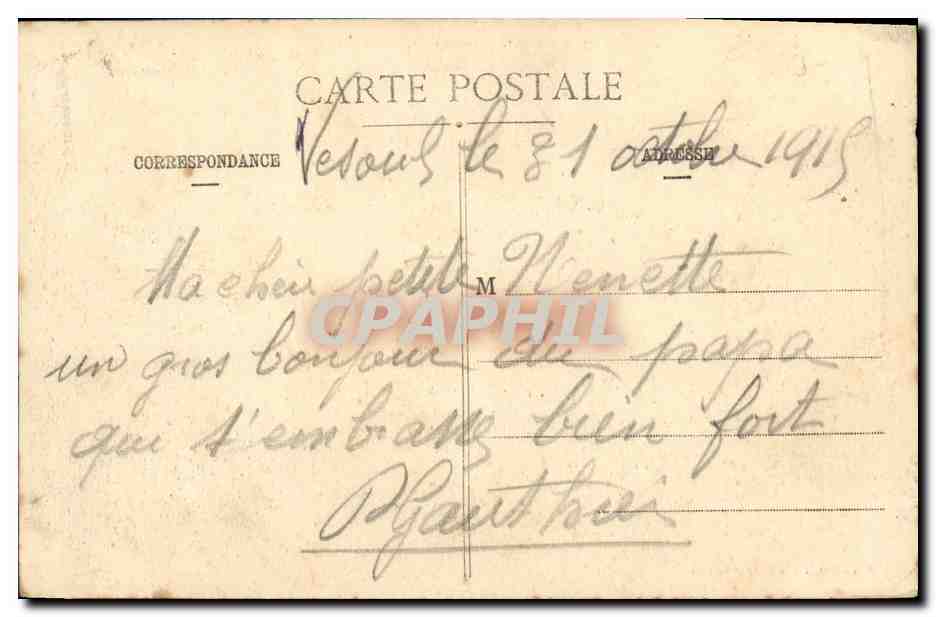 CARTE POSTALE
CORRESPONDANCE
ADRESSE
Vesoul le 31 octobre 1915
Ma chère petite Nenette
M
CPAPHIL
un gros bonjour du papa
qui t'embrasse bien fort